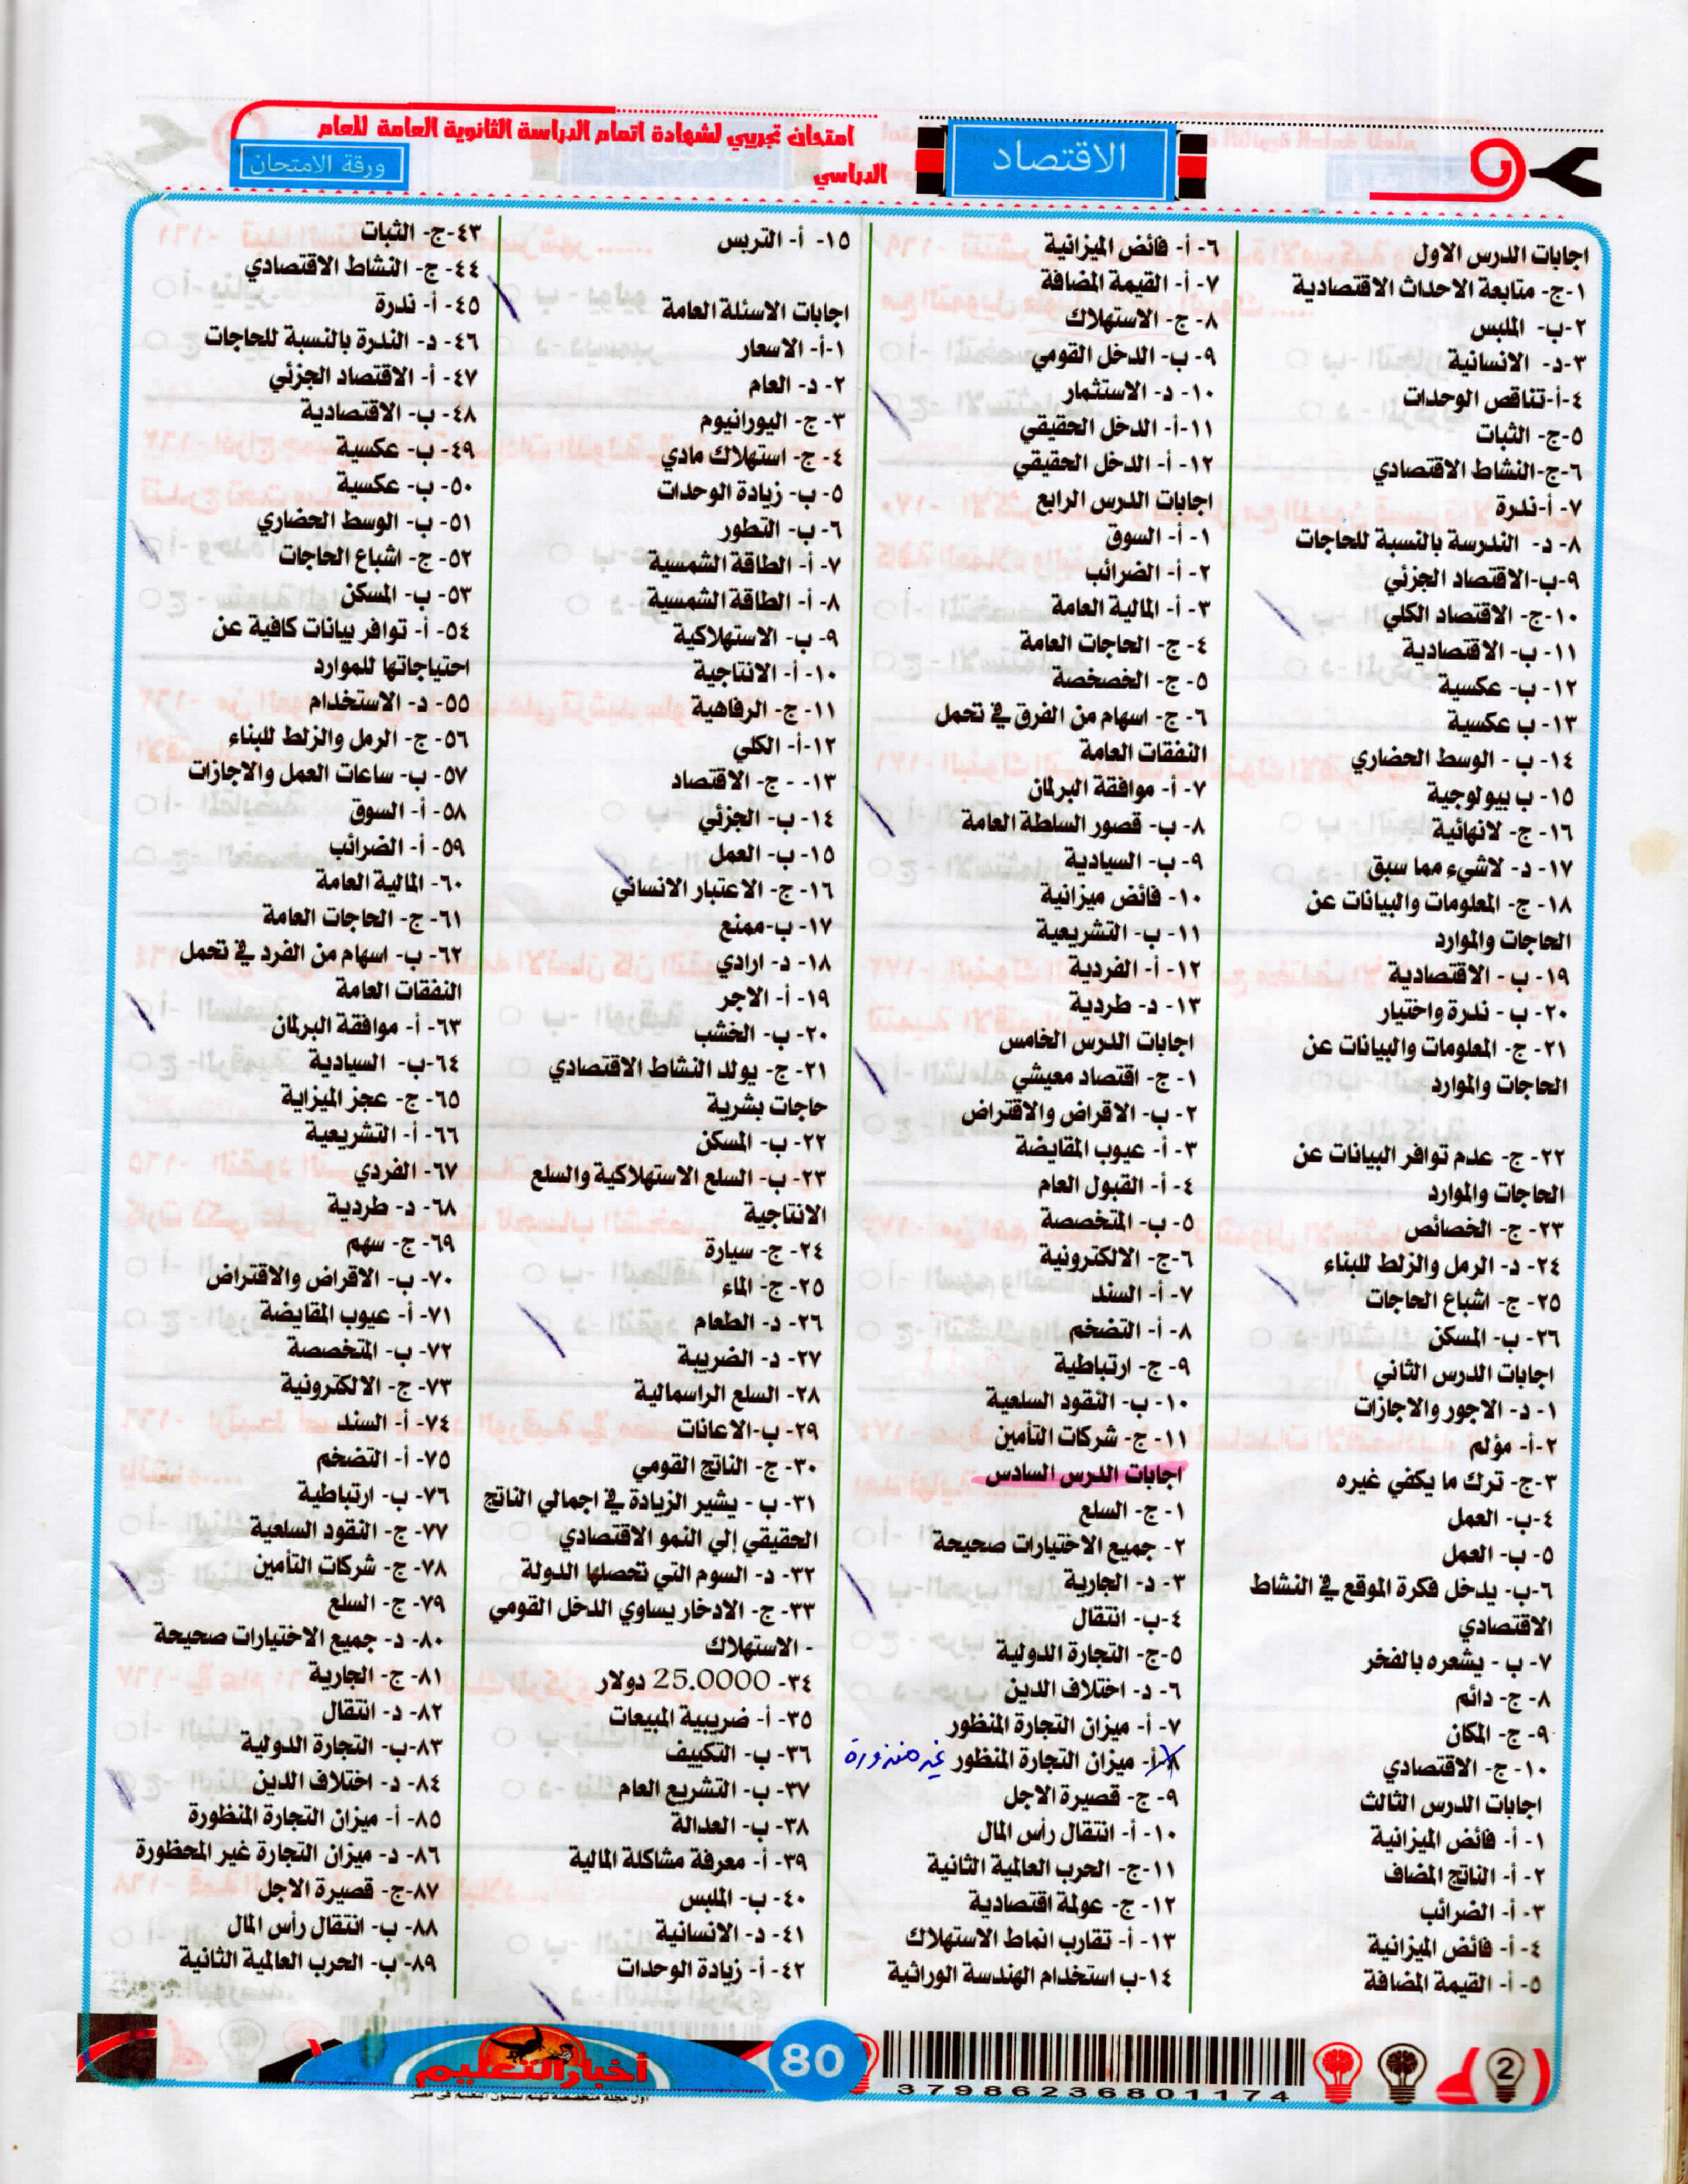 امتحان تجريبي لشهادة اتمام الدراسة الثانوية العامة للعام
الدراسي
ورقة الامتحان
الاقتصاد
اجابات الدرس الاول
١-ج- متابعة الاحداث الاقتصادية
٢-ب- الملبس
٣-د- الانسانية
٤-أ-تناقص الوحدات
٥-ج- الثبات
٦-ج-النشاط الاقتصادي
٧-أ-ندرة
٨-د- الندرسة بالنسبة للحاجات
٩-ب-الاقتصاد الجزئي
١٠-ج- الاقتصاد الكلي
١١-ب- الاقتصادية
١٢-ب- عكسية
١٣-ب عكسية
١٤-ب - الوسط الحضاري
١٥-ب بيولوجية
١٦-ج- لانهائية
١٧-د- لاشيء مما سبق
١٨-ج- المعلومات والبيانات عن
الحاجات والموارد
١٩-ب- الاقتصادية
٢٠-ب - ندرة واختيار
٢١-ج- المعلومات والبيانات عن
الحاجات والموارد
٢٢-ج- عدم توافر البيانات عن
الحاجات والموارد
٢٣-ج- الخصائص
٢٤-د- الرمل والزلط للبناء
٢٥-ج- اشباع الحاجات
٢٦-ب- المسكن
اجابات الدرس الثاني
١-د- الاجور والاجازات
٢-أ- مؤلم
٣-ج- ترك ما يكفي غيره
٤-ب- العمل
٥-ب- العمل
٦-ب- يدخل فكرة الموقع في النشاط
الاقتصادي
٧-ب - يشعره بالفخر
٨-ج- دائم
٩-ج- المكان
١٠-ج- الاقتصادي
اجابات الدرس الثالث
١-أ- فائض الميزانية
٢-أ- الناتج المضاف
٣-أ- الضرائب
٤-أ- فائض الميزانية
٥-أ- القيمة المضافة
٦-أ- فائض الميزانية
٧-أ- القيمة المضافة
٨-ج- الاستهلاك
٩-ب- الدخل القومي
١٠-د- الاستثمار
١١-أ- الدخل الحقيقي
١٢-أ- الدخل الحقيقي
اجابات الدرس الرابع
١-أ- السوق
٢-أ- الضرائب
٣-أ- المالية العامة
٤-ج- الحاجات العامة
٥-ج- الخصخصة
٦-ج- اسهام من الفرق في تحمل
النفقات العامة
٧-أ- موافقة البرلمان
٨-ب- قصور السلطة العامة
٩-ب- السيادية
١٠- فائض ميزانية
١١-ب- التشريعية
١٢-أ- الفردية
١٣-د- طردية
اجابات الدرس الخامس
١-ج- اقتصاد معيشي
٢-ب- الاقراض والاقتراض
٣-أ- عيوب المقايضة
٤-أ- القبول العام
٥-ب- المتخصصة
٦-ج- الالكترونية
٧-أ- السند
٨-أ- التضخم
٩-ج- ارتباطية
١٠-ب- النقود السلعية
١١-ج- شركات التأمين
اجابات الدرس السادس
١-ج- السلع
٢- جميع الاختيارات صحيحة
٣-د- الجارية
٤-ب- انتقال
٥-ج- التجارة الدولية
٦-د- اختلاف الدين
٧-أ- ميزان التجارة المنظور
٨-أ- ميزان التجارة المنظور غير منظورة
٩-ج- قصيرة الاجل
١٠-أ- انتقال رأس المال
١١-ج- الحرب العالمية الثانية
١٢-ج- عولمة اقتصادية
١٣-أ- تقارب انماط الاستهلاك
١٤-ب استخدام الهندسة الوراثية
١٥-أ- التربس
اجابات الاسئلة العامة
١-أ- الاسعار
٢-د- العام
٣-ج- اليورانيوم
٤-ج- استهلاك مادي
٥-ب- زيادة الوحدات
٦-ب- التطور
٧-أ- الطاقة الشمسية
٨-أ- الطاقة الشمسية
٩-ب- الاستهلاكية
١٠-أ- الانتاجية
١١-ج- الرفاهية
١٢-أ- الكلي
١٣- -ج- الاقتصاد
١٤-ب- الجزئي
١٥-ب- العمل
١٦-ج- الاعتبار الانساني
١٧-ب-ممنع
١٨-د- ارادي
١٩-أ- الاجر
٢٠-ب- الخشب
٢١-ج- يولد النشاط الاقتصادي
حاجات بشرية
٢٢-ب- المسكن
٢٣-ب- السلع الاستهلاكية والسلع
الانتاجية
٢٤-ج- سيارة
٢٥-ج- الماء
٢٦-د- الطعام
٢٧-د- الضريبة
٢٨- السلع الراسمالية
٢٩-ب-الاعانات
٣٠-ج- الناتج القومي
٣١-ب - يشير الزيادة في اجمالي الناتج
الحقيقي إلي النمو الاقتصادي
٣٢-د- السوم التي تحصلها الدولة
٣٣-ج- الادخار يساوي الدخل القومي
- الاستهلاك
٣٤- 25.0000 دولار
٣٥-أ- ضريبية المبيعات
٣٦-ب- التكييف
٣٧-ب- التشريع العام
٣٨-ب- العدالة
٣٩-أ- معرفة مشاكلة المالية
٤٠-ب- الملبس
٤١-د- الانسانية
٤٢-أ- زيادة الوحدات
٤٣-ج- الثبات
٤٤-ج- النشاط الاقتصادي
٤٥-أ- ندرة
٤٦-د- الندرة بالنسبة للحاجات
٤٧-أ- الاقتصاد الجزئي
٤٨-ب- الاقتصادية
٤٩-ب- عكسية
٥٠-ب- عكسية
٥١-ب- الوسط الحضاري
٥٢-ج- اشباع الحاجات
٥٣-ب- المسكن
٥٤-أ- توافر بيانات كافية عن
احتياجاتها للموارد
٥٥-د- الاستخدام
٥٦-ج- الرمل والزلط للبناء
٥٧-ب- ساعات العمل والاجازات
٥٨-أ- السوق
٥٩-أ- الضرائب
٦٠- المالية العامة
٦١-ج- الحاجات العامة
٦٢-ب- اسهام من الفرد في تحمل
النفقات العامة
٦٣-أ- موافقة البرلمان
٦٤-ب- السيادية
٦٥-ج- عجز الميزاية
٦٦-أ- التشريعية
٦٧- الفردي
٦٨-د- طردية
٦٩-ج- سهم
٧٠-ب- الاقراض والاقتراض
٧١-أ- عيوب المقايضة
٧٢-ب- المتخصصة
٧٣-ج- الالكترونية
٧٤-أ- السند
٧٥-أ- التضخم
٧٦-ب- ارتباطية
٧٧-ج- النقود السلعية
٧٨-ج- شركات التأمين
٧٩-ج- السلع
٨٠-د- جميع الاختيارات صحيحة
٨١-ج- الجارية
٨٢-د- انتقال
٨٣-ب- التجارة الدولية
٨٤-د- اختلاف الدين
٨٥-أ- ميزان التجارة المنظورة
٨٦-د- ميزان التجارة غير المحظورة
٨٧-ج- قصيرة الاجل
٨٨-ب- انتقال رأس المال
٨٩-ب- الحرب العالمية الثانية
أخبار التعليم
اول مجلة متخصصة تهتم بشئون التعليم في مصر
80
37986236801174
2